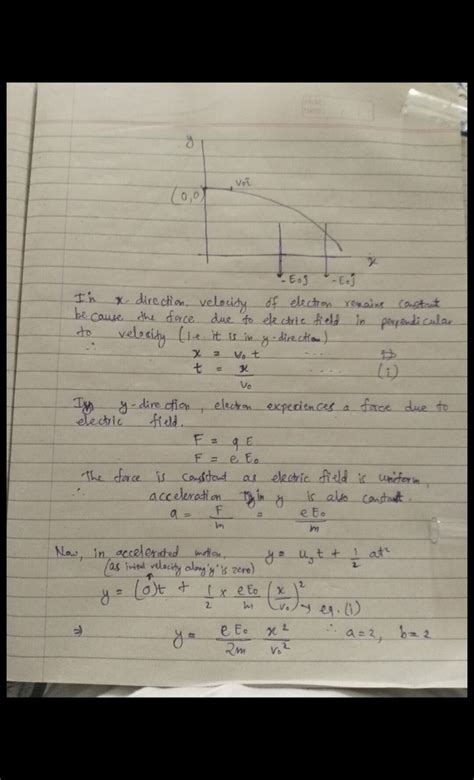 y
(0,0)
v₀î
x
-E₀ĵ -E₀ĵ
In x-direction, velocity of electron remains constant
because the force due to electric field in perpendicular
to velocity (i.e it is in y-direction)
∴ x = v₀ t
t = x/v₀ (i)
In y-direction, electron experiences a force due to
electric field.
F = qE
F = eE₀
The force is constant as electric field is uniform,
∴ acceleration in y is also constant.
a = F/m = eE₀/m
Now, in accelerated motion, y = u_y t + 1/2 at²
(as initial velocity along 'y' is zero)
y = (0)t + 1/2 × eE₀/m (x/v₀)² → eq.(i)
⇒ y = eE₀/2m x²/v₀² ∴ a=2, b=2